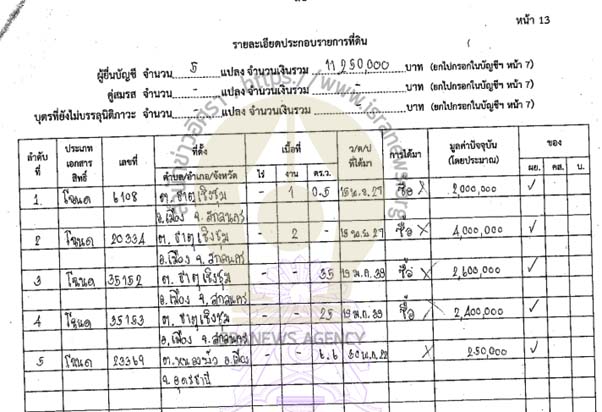 หน้า 13
รายละเอียดประกอบรายการที่ดิน
ผู้ยื่นบัญชี จำนวน 5 แปลง จำนวนเงินรวม 11,250,000 บาท (ยกไปกรอกในบัญชีฯ หน้า 7)
คู่สมรส จำนวน - แปลง จำนวนเงินรวม - บาท (ยกไปกรอกในบัญชีฯ หน้า 7)
บุตรที่ยังไม่บรรลุนิติภาวะ จำนวน - แปลง จำนวนเงินรวม - บาท (ยกไปกรอกในบัญชีฯ หน้า 7)
ลำดับที่ ประเภทเอกสารสิทธิ์ เลขที่ ที่ตั้ง เนื้อที่ ว/ด/ป ที่ได้มา การได้มา มูลค่าปัจจุบัน (โดยประมาณ) ของ
ตำบล/อำเภอ/จังหวัด ไร่ งาน ตร.ว. ผย. คส. บ.
1 โฉนด 6108 ต. ธาตุเชิงชุม - 1 0.5 ซื้อ X 2,000,000 ✓
อ.เมือง จ. สกลนคร
2 โฉนด 20334 ต. ธาตุเชิงชุม - 2 - ซื้อ X 4,000,000 ✓
อ.เมือง จ. สกลนคร
3 โฉนด 35152 ต. ธาตุเชิงชุม - - 35 19 ม.ค. 39 ซื้อ X 2,600,000 ✓
อ.เมือง จ. สกลนคร
4 โฉนด 35153 ต. ธาตุเชิงชุม - - 25 19 ม.ค. 39 ซื้อ X 2,400,000 ✓
อ.เมือง จ. สกลนคร
5 โฉนด 23369 ต.หนองบัว อ.เมือง - - 6.6 X 250,000 ✓
จ. อุดรธานี
สำนักข่าวอิศรา https://www.isranews.org
ISRANEWS AGENCY